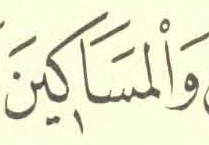 وَالْمَسَاكِينَ